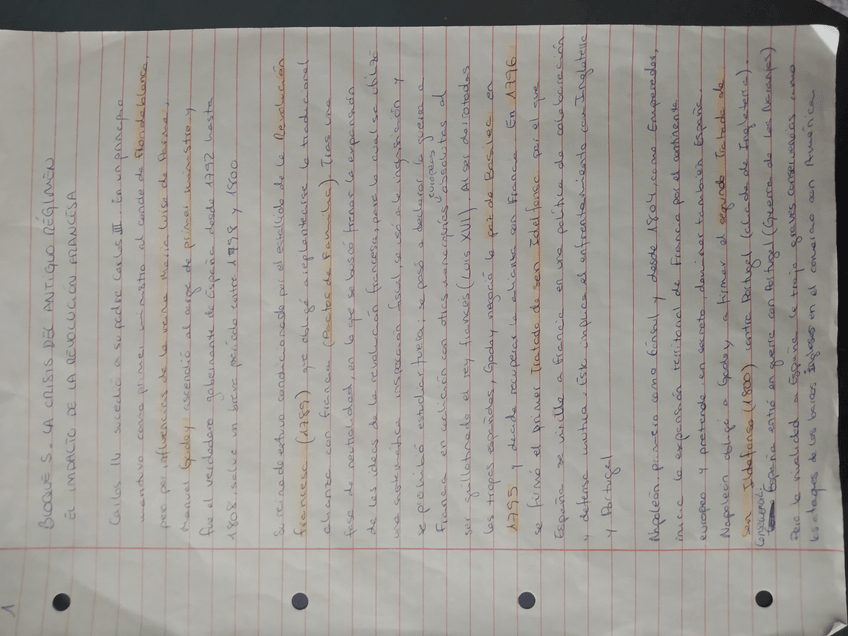 1
BLOQUE 5. LA CRISIS DEL ANTIGUO RÉGIMEN
EL IMPACTO DE LA REVOLUCIÓN FRANCESA
Carlos IV sucedió a su padre Carlos III. En un principio
mantuvo como primer ministro al conde de Floridablanca,
pero por influencias de la reina María Luisa de Parma,
Manuel Godoy ascendió al cargo de primer ministro y
fue el verdadero gobernante de España desde 1792 hasta
1808, salvo un breve período entre 1798 y 1800
Su reinado estuvo condicionado por el estallido de la Revolución
francesa (1789), que obligó a replantearse la tradicional
alianza con Francia (Pactos de Familia) Tras una
fase de neutralidad, en la que se buscó frenar la expansión
de las ideas de la revolución francesa, para lo cual se utilizó
una sistemática inspección fiscal, se usó a la inquisición y
se prohibió estudiar fuera, se pasó a declarar la guerra a
Francia en coalición con otras monarquías europeas absolutistas al
ser guillotinado el rey francés (Luis XVI). Al ser derrotadas
las tropas españolas, Godoy negoció la paz de Basilea en
1795 y decide recuperar la alianza con Francia. En 1796
se firmó el primer Tratado de San Ildefonso por el que
España se unió a Francia en una política de colaboración
y defensa mutua. Esto implica el enfrentamiento con Inglaterra
y Portugal
Napoleón, primero como Cónsul y desde 1804, como Emperador,
inicia la expansión territorial de Francia por el continente
europeo y pretende, en secreto, dominar también España.
Napoleón obliga a Godoy a firmar el segundo Tratado de
San Ildefonso (1800) contra Portugal (aliada de Inglaterra).
Consecuencia España entró en guerra con Portugal (Guerra de las Naranjas)
Pero la rivalidad a España le trajo graves consecuencias como
los ataques de los barcos ingleses en el comercio con América